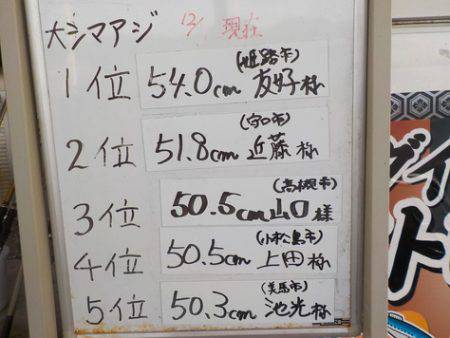 大シマアジ 12/ 現在
(姫路市)
1位 54.0cm 友好様
(守口市)
2位 51.8cm 近藤様
(高槻市)
3位 50.5cm 山口様
(小松島市)
4位 50.5cm 上田様
(美馬市)
5位 50.3cm 池光様